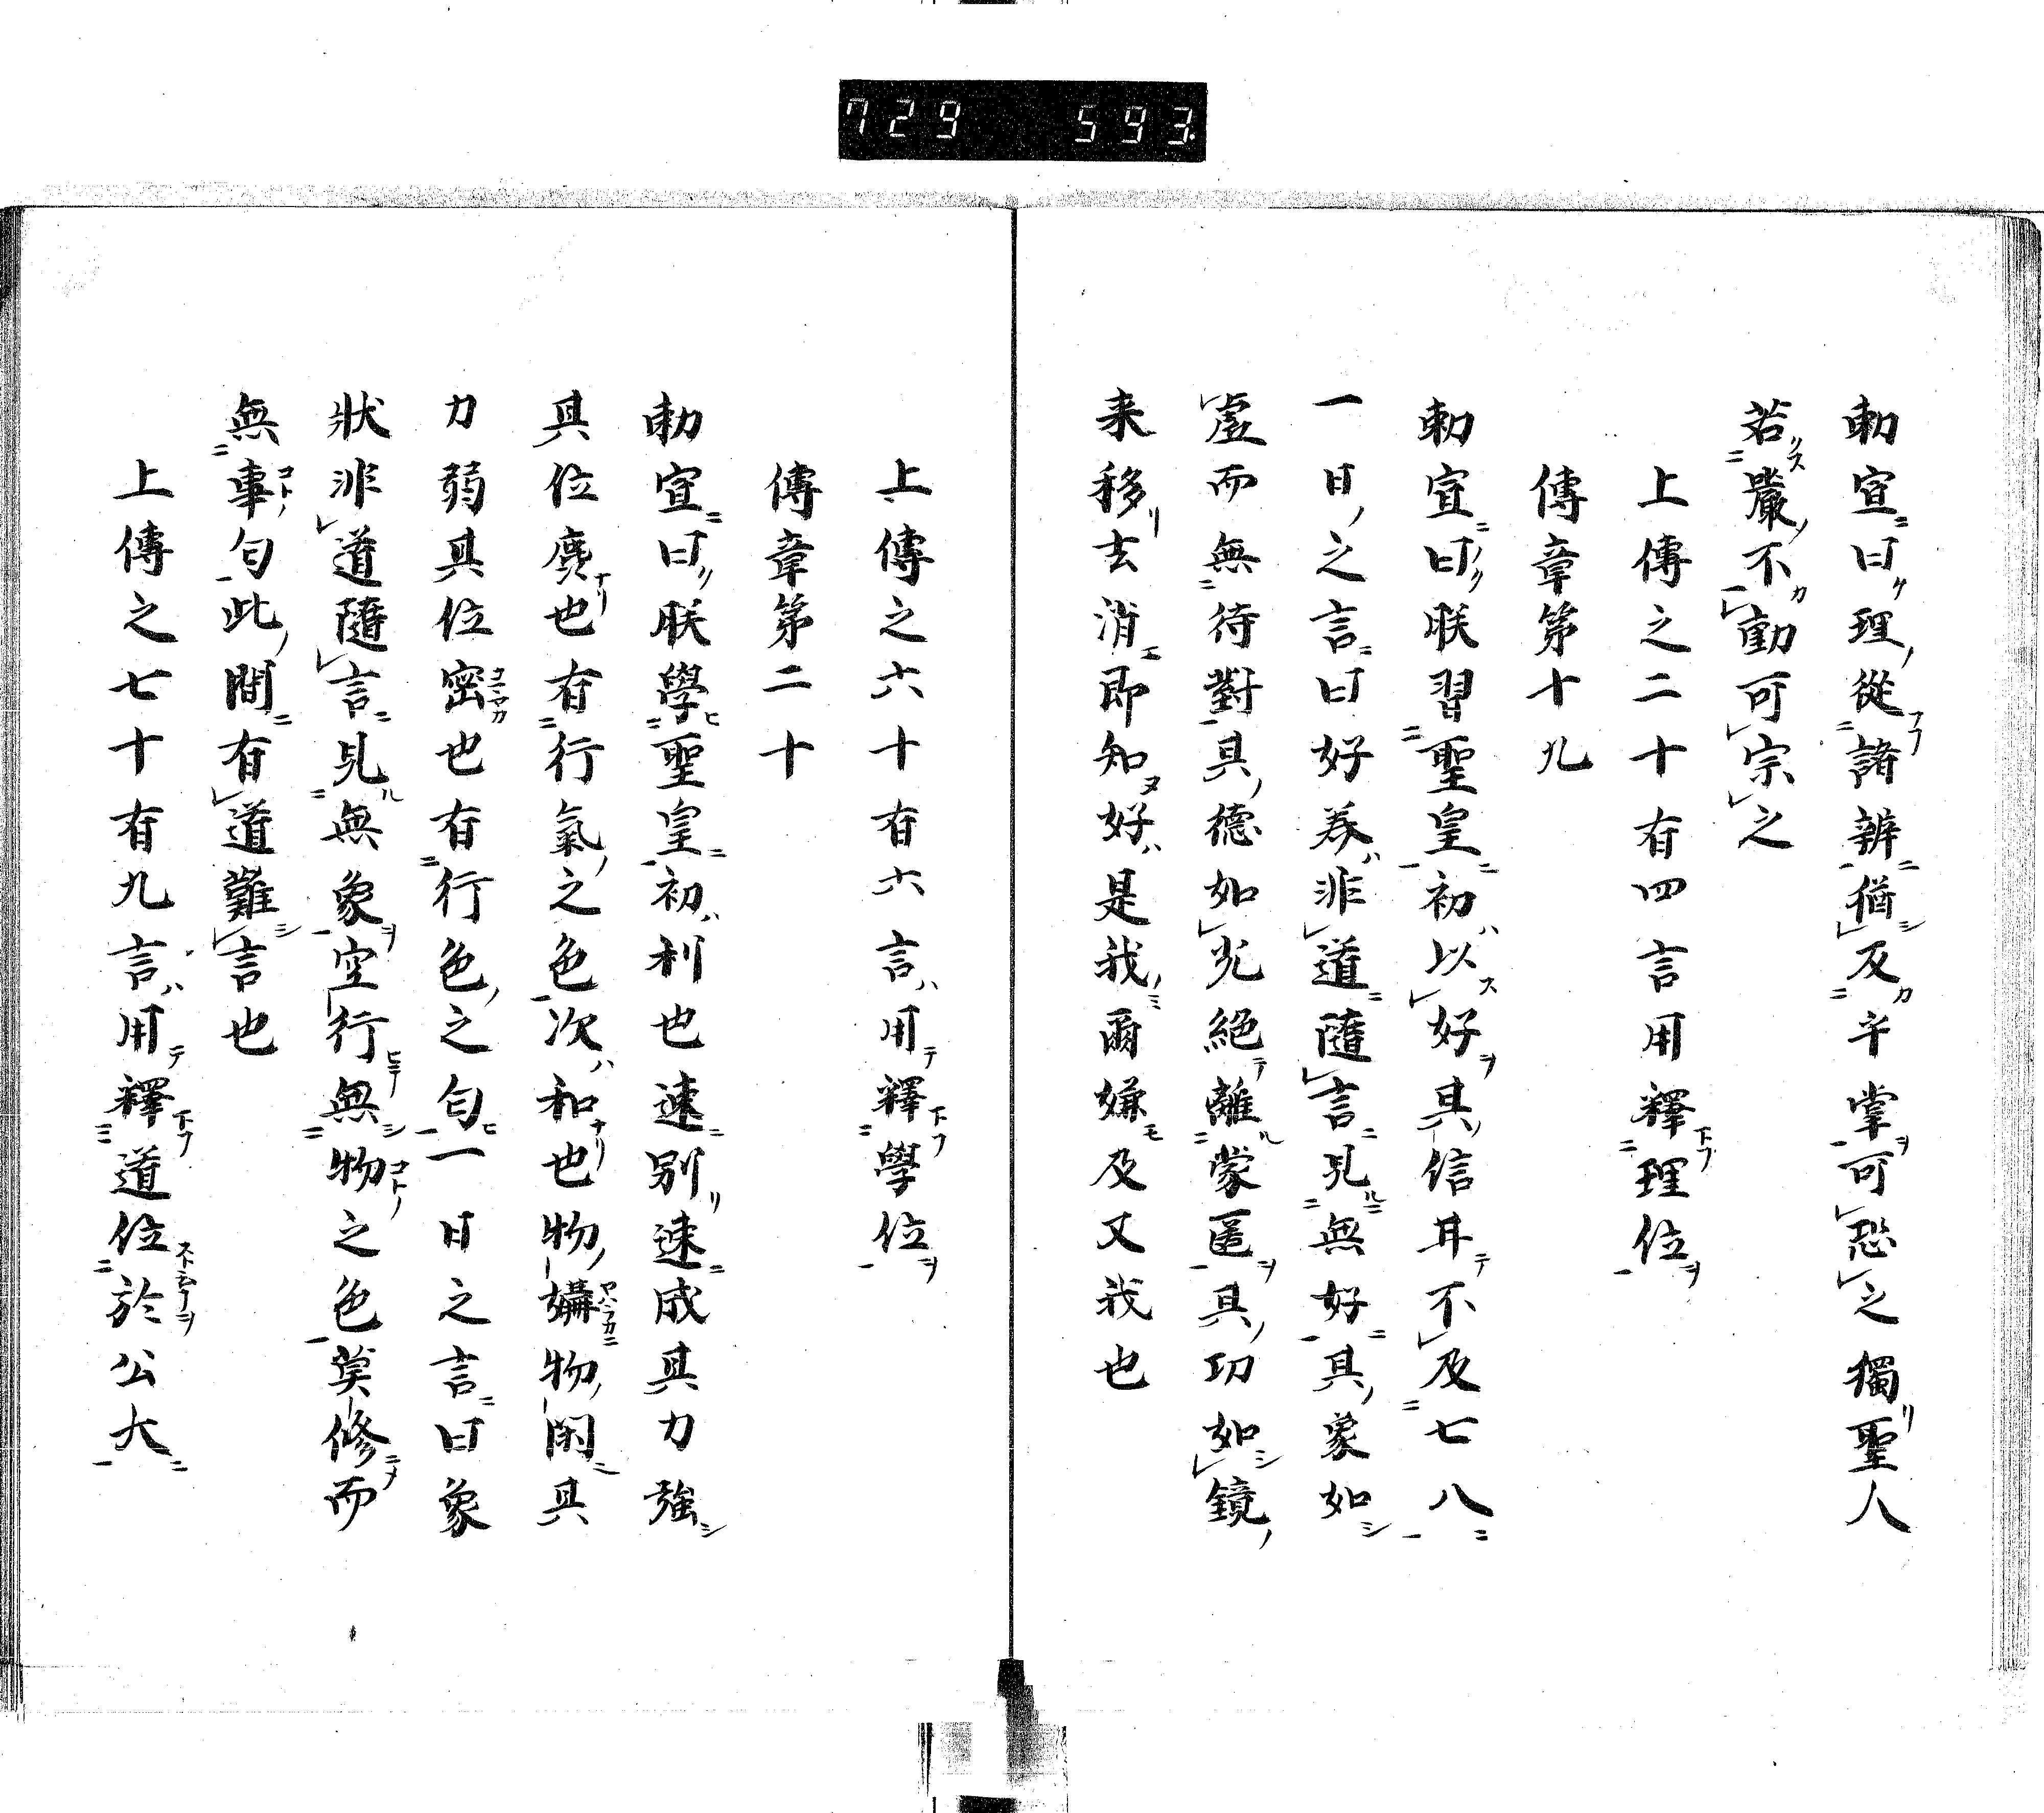 729 593
勅宣曰理從諸辨猶及午掌可恐之獨聖人
若嚴不勸可宗之
上傳之二十有四言用釋理位
傳章第十九
勅宣曰朕習聖皇初以好其信井不及七八
一日之言曰好券非道隨言見無好具象如
虛而無待對具德如光絕離蒙匿具功如鏡
来移去消即知好是我爾嫌及又我也
上傳之六十有六言用釋學位
傳章第二十
勅宣曰朕學聖皇初利也速別速成其力強
其位麁也有行氣之色次和也物孀物閑具
力弱其位密也有行色之匂一日之言曰象
狀非道隨言見無象空行無物之色莫修而
無事匂此間有道難言也
上傳之七十有九言用釋道位於公大